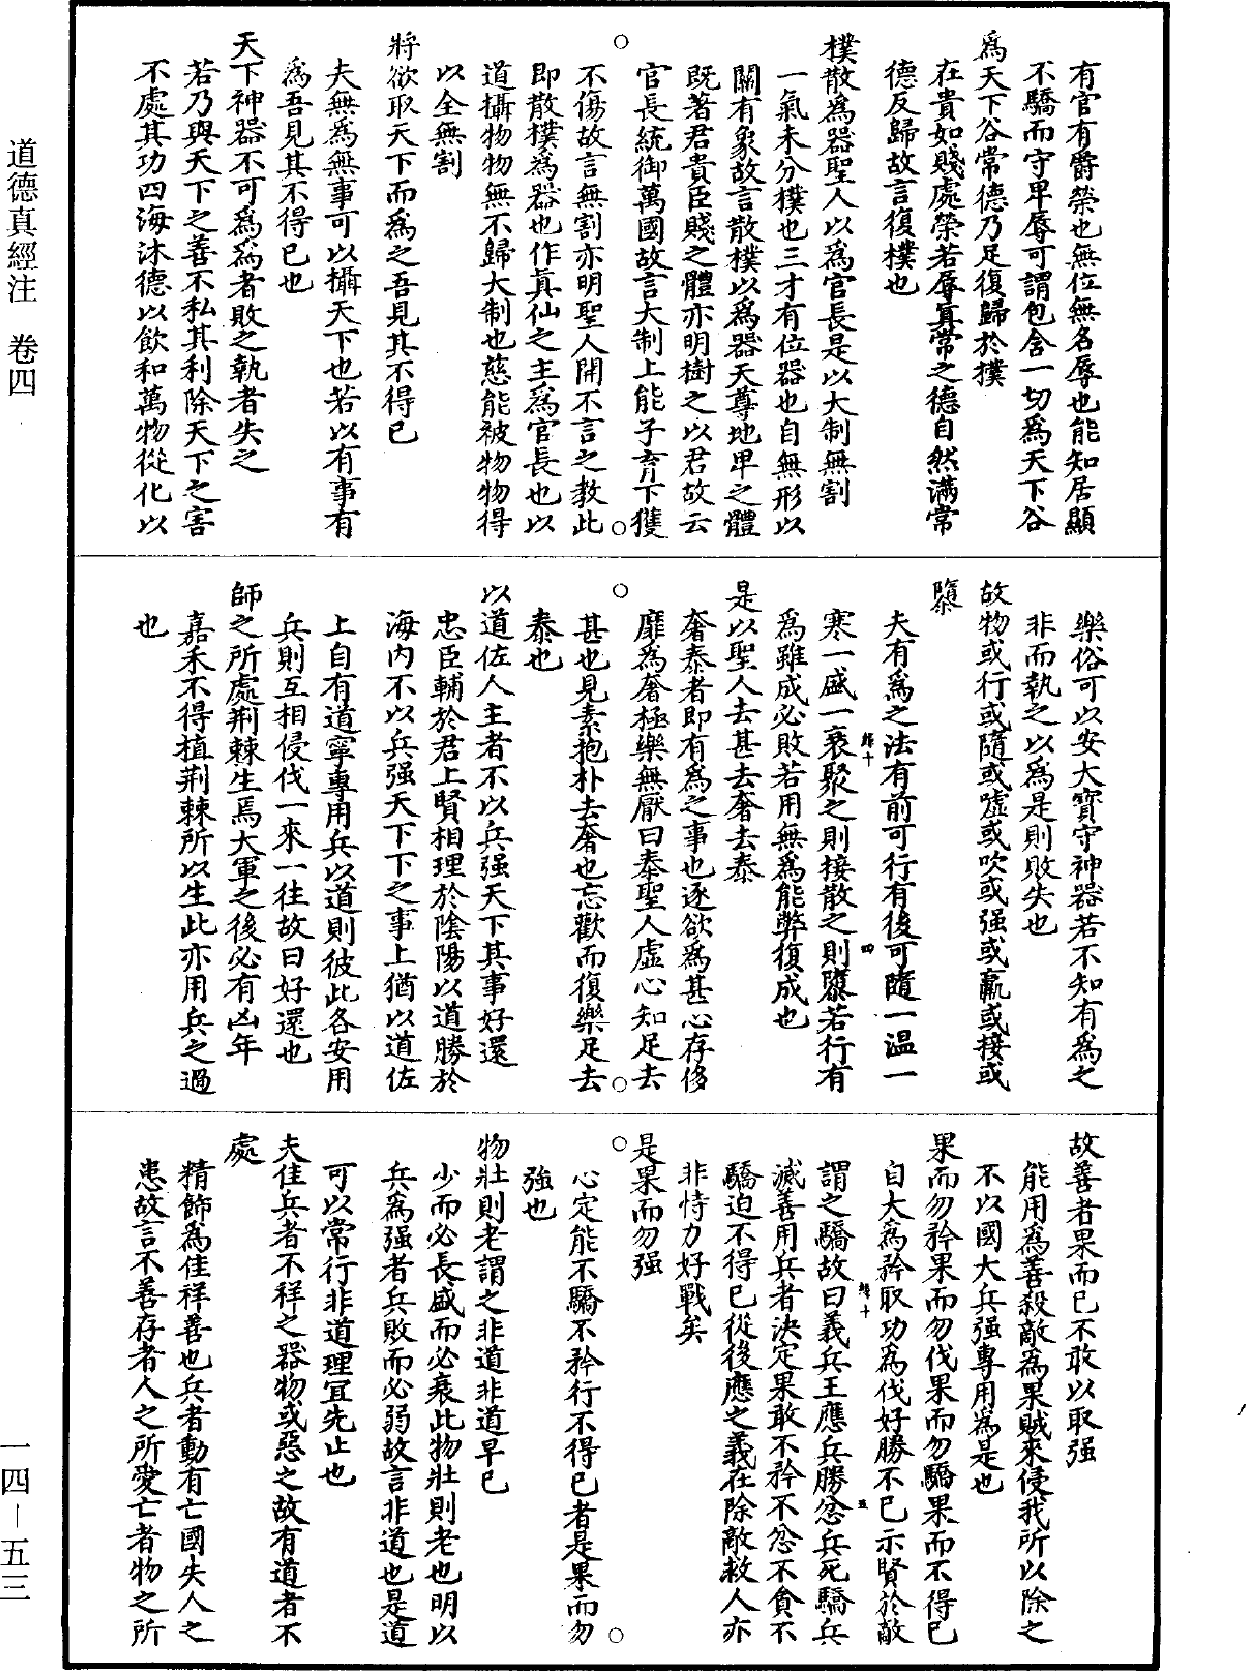 有官有爵榮也無位無名辱也能知居顯
不驕而守卑辱可謂包含一切爲天下谷
爲天下谷常德乃足復歸於撲
在貴如賤處榮若辱真常之德自然滿常
德反歸故言復樸也
樸散爲器聖人以爲官長是以大制無割
一氣未分樸也三才有位器也自無形以
關有象故言散樸以爲器天尊地卑之體
既著君貴臣賤之體亦明樹之以君故云
官長統御萬國故言大制上能子育下獲
不傷故言無割亦明聖人開不言之教此
即散樸爲器也作真仙之主爲官長也以
道攝物物無不歸大制也慈能被物物得
以全無割
將欲取天下而爲之吾見其不得已
夫無爲無事可以攝天下也若以有事有
爲吾見其不得已也
天下神器不可爲爲者敗之執者失之
若乃與天下之善不私其利除天下之害
不處其功四海沐德以飲和萬物從化以
樂俗可以安大寶守神器若不知有爲之
非而執之以爲是則敗失也
故物或行或隨或噓或吹或强或羸或接或
隳
夫有爲之法有前可行有後可隨一温一
寒一盛一衰聚之則接散之則隳若行有
爲雖成必敗若用無爲能弊復成也
是以聖人去甚去奢去泰
奢泰者即有爲之事也逐欲爲甚心存侈
靡爲奢極樂無厭曰泰聖人虛心知足去
甚也見素抱朴去奢也忘歡而復樂足去
泰也
以道佐人主者不以兵强天下其事好還
忠臣輔於君上賢相理於陰陽以道勝於
海内不以兵强天下下之事上猶以道佐
上自有道寧專用兵以道則彼此各安用
兵則互相侵伐一來一往故曰好還也
師之所處荆棘生焉大軍之後必有凶年
嘉禾不得植荆棘所以生此亦用兵之過
也
故善者果而已不敢以取强
能用爲善殺敵爲果賊來侵我所以除之
不以國大兵强專用爲是也
果而勿矜果而勿伐果而勿驕果而不得已
自大爲矜取功爲伐好勝不已示賢於敵
謂之驕故曰義兵王應兵勝忿兵死驕兵
滅善用兵者決定果敢不矜不忿不貪不
驕迫不得已從後應之義在除敵救人亦
非恃力好戰矣
是果而勿强
心定能不驕不矜行不得已者是果而勿
強也
物壯則老謂之非道非道早已
少而必長盛而必衰此物壯則老也明以
兵爲强者兵敗而必弱故言非道也是道
可以常行非道理宜先止也
夫佳兵者不祥之器物或惡之故有道者不
處
精飾爲佳祥善也兵者動有亡國失人之
患故言不善存者人之所愛亡者物之所
道德真經注 卷四
一四—五三